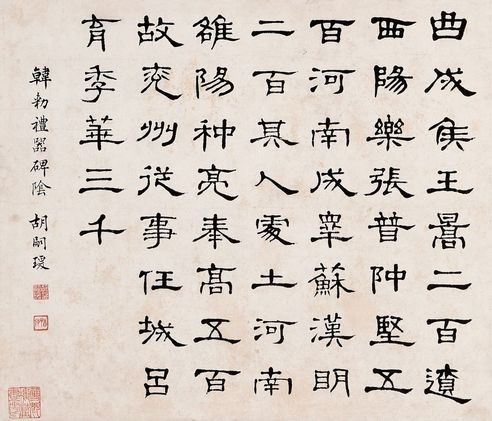 曲成侯王暠二百遼
西陽樂張普仲堅五
百河南成皋蘇漢明
二百其人處士河南
雒陽种亮奉高五百
故兗州從事任城呂
育季華三千
韓勑禮器碑陰 胡嗣瑗